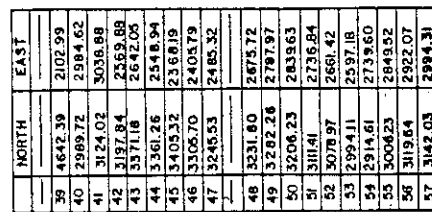 NORTH EAST
39 4642.39 2102.99
40 2989.72 2984.62
41 3124.02 3038.88
42 3197.84 2569.88
43 3371.18 2642.05
44 3361.26 2548.94
45 3405.32 2368.19
46 3306.70 2405.79
47 3245.53 2485.32
48 3231.80 2675.72
49 3282.26 2787.97
50 3206.23 2839.63
51 3111.41 2736.84
52 3078.97 2661.42
53 2994.11 2597.18
54 2914.61 2739.60
55 3006.23 2849.52
56 3119.64 2922.07
57 3142.03 2994.31